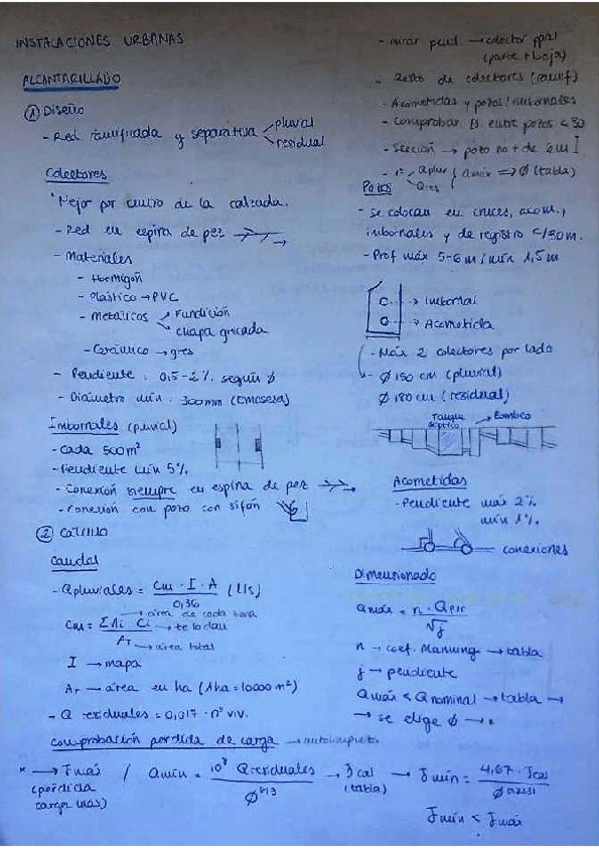 INSTALACIONES URBANAS
ALCANTARILLADO
① Diseño
- Red ramificada y separativa pluvial
residual
Colectores
Mejor por centro de la calzada.
- Red en espina de pez
- Materiales
- Hormigón
- Plástico → PVC
- Metálicos Fundición
chapa grecada
- Cerámico → gres
- Pendiente: 0,5-2% según ϕ
- Diámetro mín. 300mm (Emasesa)
Imbornales (pluvial)
- Cada 500m²
- Pendiente mín 5%.
- Conexión siempre en espina de pez
- Conexión con pozo con sifón
② Cálculo
Caudal
- Qpluviales = Cm · I · A / 0,36 (l/s)
→ área de cada zona
Cm = ΣAi Ci / AT → te lo dan
→ área total
I → mapa
AT → área en ha (1ha = 10000 m²)
- Q residuales = 0,017 · nº viv.
Comprobación pérdida de carga → autolimpieza
* → Jmáx / Qmín = Qresiduales → Jcal → Jmín = 4,67 · Jcal
(pérdida (tabla)
carga máx) Jmín < Jmáx
- mirar pend. → colector ppal
(parte + baja)
- Resto de colectores (ramif)
- Acometidas y pozos/imbornales
- Comprobar D. entre pozos < 50
- Sección → pozo no + de 6m
Qplu
Qres Qmáx ⇒ ϕ (tabla)
Pozos
- Se colocan en cruces, acom.,
imbornales y de registro c/50m.
- Prof máx 5-6m / mín 1,5m
→ Imbornal
→ Acometida
- Máx 2 colectores por lado
- ϕ 150 cm (pluvial)
ϕ 180 cm (residual)
Tanque séptico
Bombeo
Acometidas
- Pendiente máx 2%
mín 1%.
conexiones
Dimensionado
Qmáx = n · / √j
n → coef. Manning → tabla
j → pendiente
Qmáx < Qnominal → tabla →
→ se elige ϕ → *